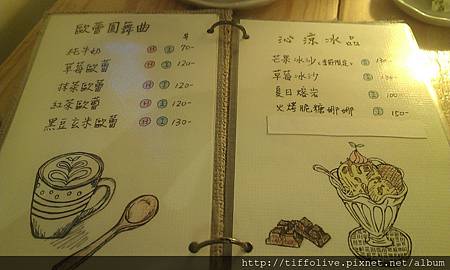 歐蕾圓舞曲
純牛奶 H 70-
草莓歐蕾 H 120-
抹茶歐蕾 H 120-
紅茶歐蕾 H 120-
黑豆玄米歐蕾 H 130-
沁涼冰品
芒果冰沙(季節限定) 130-
草莓冰沙 130-
夏日爆米 100-
火爆脆糖娜娜 150-
http://tiffolive.pixnet.net/album